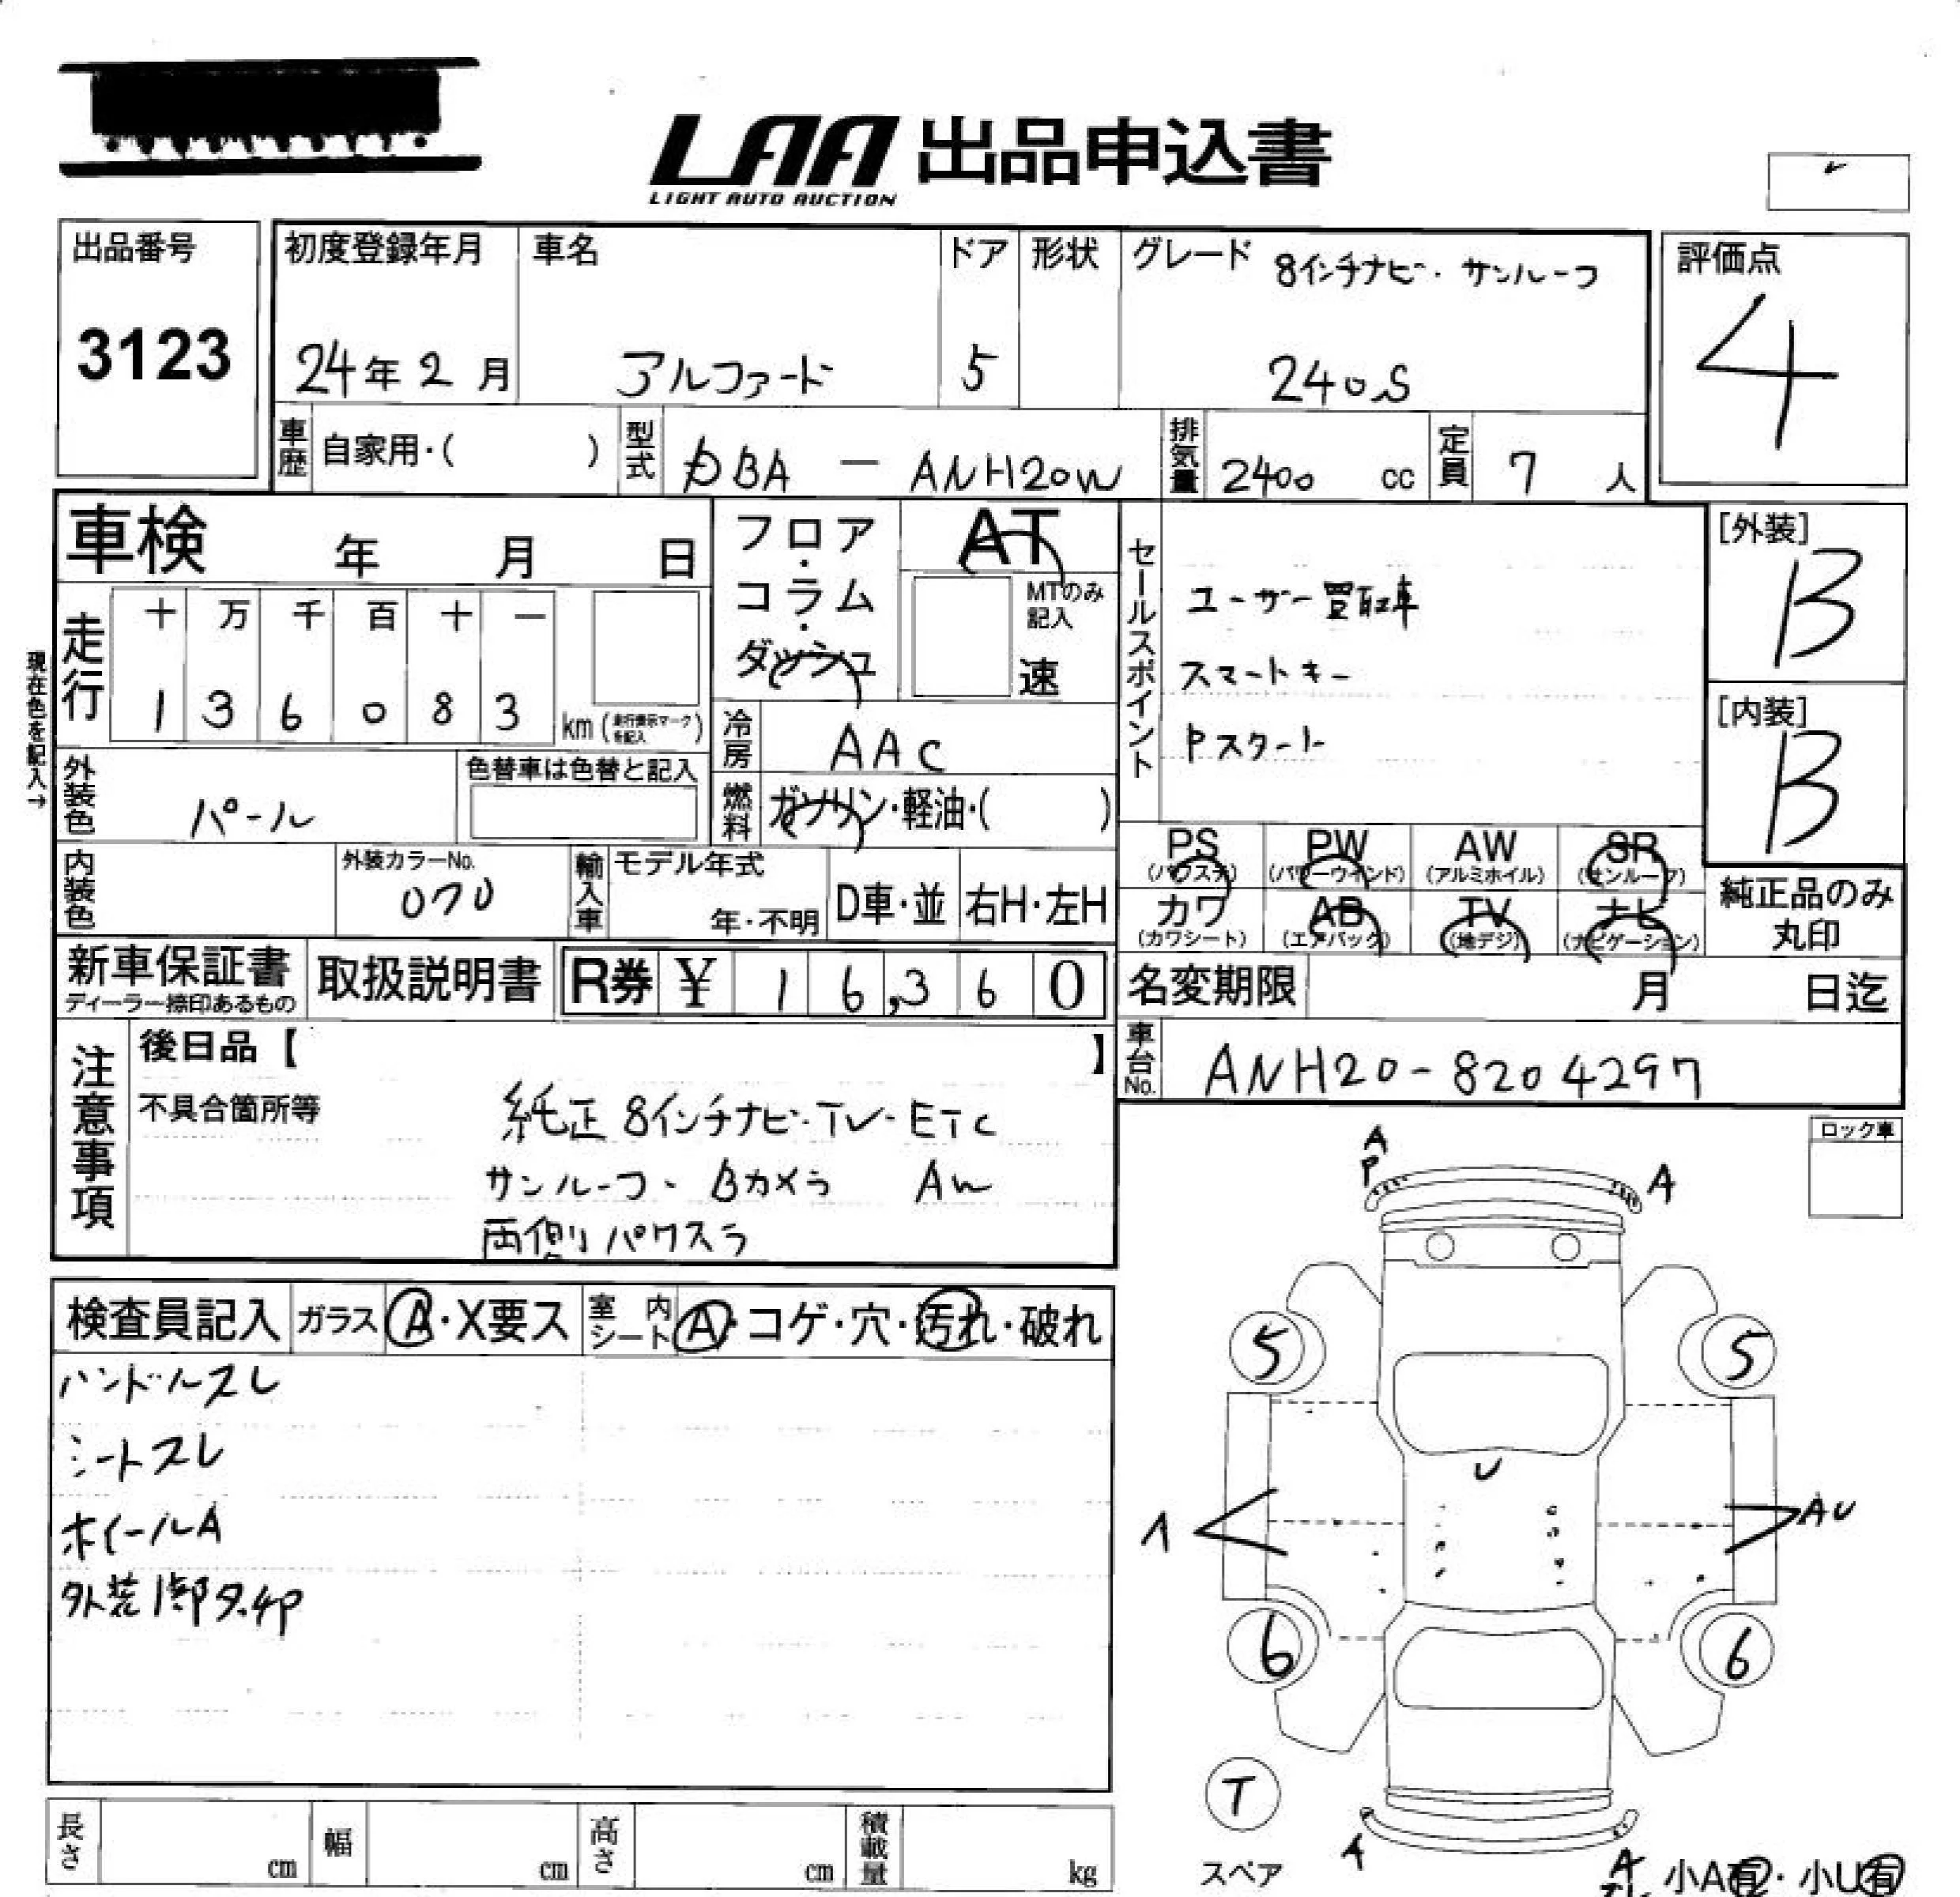 LAA 出品申込書
LIGHT AUTO AUCTION
出品番号
3123
初度登録年月
24年2月
車名
アルファード
ドア
5
形状
グレード
8インチナビ・サンルーフ
240S
評価点
4
車歴
自家用・( )
型式
DBA — ANH20W
排気量
2400 cc
定員
7 人
車検 年 月 日
現在色を記入→
走行
十 万 千 百 十 一
1 3 6 0 8 3
km (走行表示マークを記入)
フロア・コラム・ダッシュ
AT
MTのみ記入
速
冷房
AAC
燃料
ガソリン・軽油・( )
セールスポイント
ユーザー買取車
スマートキー
Pスタート
[外装]
B
[内装]
B
外装色
パール
色替車は色替と記入
内装色
外装カラーNo.
070
輸入車
モデル年式
年・不明
D車・並
右H・左H
PS
(パワステ)
PW
(パワーウインド)
AW
(アルミホイル)
SR
(サンルーフ)
カワ
(カワシート)
AB
(エアバック)
TV
(地デジ)
ナビ
(ナビゲーション)
純正品のみ
丸印
新車保証書
ディーラー捺印あるもの
取扱説明書
R券 ¥ 16,360
名変期限 月 日迄
車台No.
ANH20-8204297
注意事項
後日品【 】
不具合箇所等
純正 8インチナビ・TV・ETC
サンルーフ、Bカメラ AW
両側パワスラ
ロック車
検査員記入
ガラス
A・X要ス
室内シート
A・コゲ・穴・汚れ・破れ
ハンドルスレ
シートスレ
ホイールA
外装1部タッチP
A
P
A
5
5
U
A
AU
6
6
T
スペア
A
A
小A有・小U有
長さ cm
幅 cm
高さ cm
積載量 kg